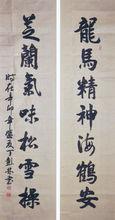 龍馬精神海鶴安
芝蘭氣味松雪操
時在辛卯年盛夏